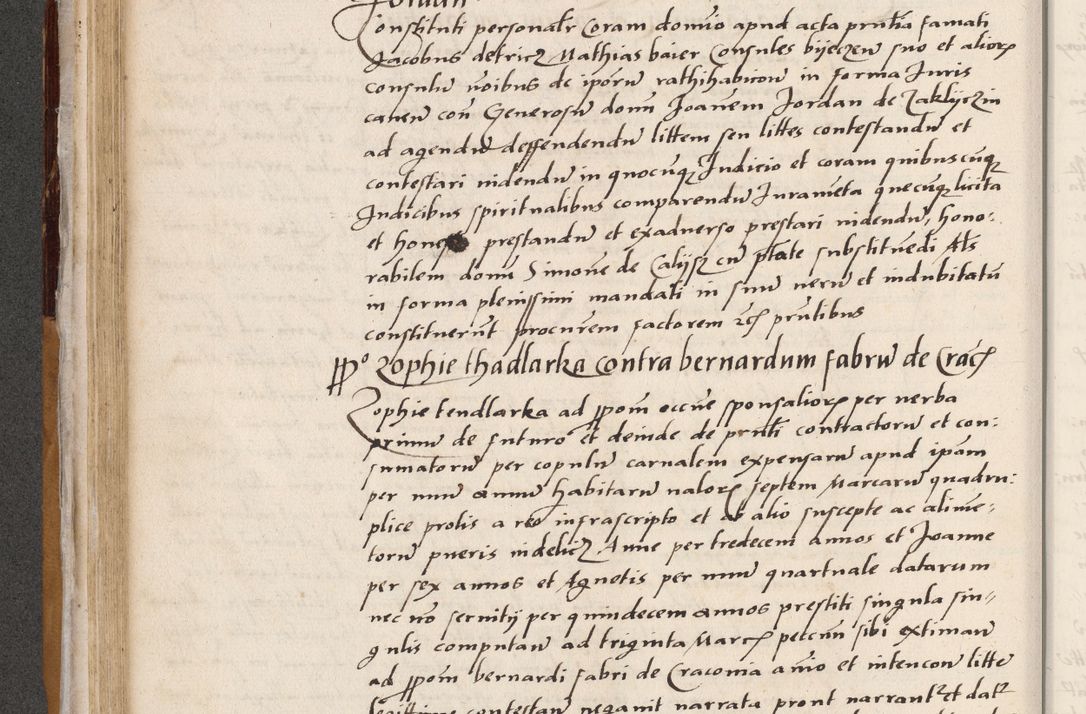 Jordan
Constituti personalr coram domino apud acta prntia famati
Jacobus detricz Mathias baier Consules bijeczen suo et aliorz
consulu noibus de iporu rathihabicon in forma Juris
cauen con Generosu domn Joanem Jordan de Zaklyczin
ad agendu deffendendu littem seu littes contestandu et
contestari uidendu in quocuqz Judicio et coram quibuscuqz
Judicibus spiritualibus comparendu Juramēta quecuqz licita
et hones prestandu et exaduerso prestari uidendu, hono:
rabilem domn Simone de Calijsz cu ptate substituedi Als
in forma plenissimi mandati in sinu neru et indubitatu
constituerut procurem factorem zcz prntibus
ppo Zophie thadlarka contra bernardum fabru de Cracz
Zophie kendlarka ad ppom occne sponsaliorz per uerba
primu de futuro et deinde de prnti contractoru et con:
sumatoru per copulu carnalem expensaru apud ipam
per unu annu habitaru ualorz septem Marcaru quadru:
plice prolis a reo infrascripto et ab alio suscepte ac alime:
toru pueris uidelicz Anne per tredecem annos et Joanne
per sex annos et Agnetis per unu quartuale datarum
nec no seruitij per quindecem annos prestiti singula sin=
gulis computan ad triginta Marcz petcun sibi extiman
ad ppom bernardi fabri de Craconia anio et intencon litte
legittime contestan negauit narrata pront narrantr et datr